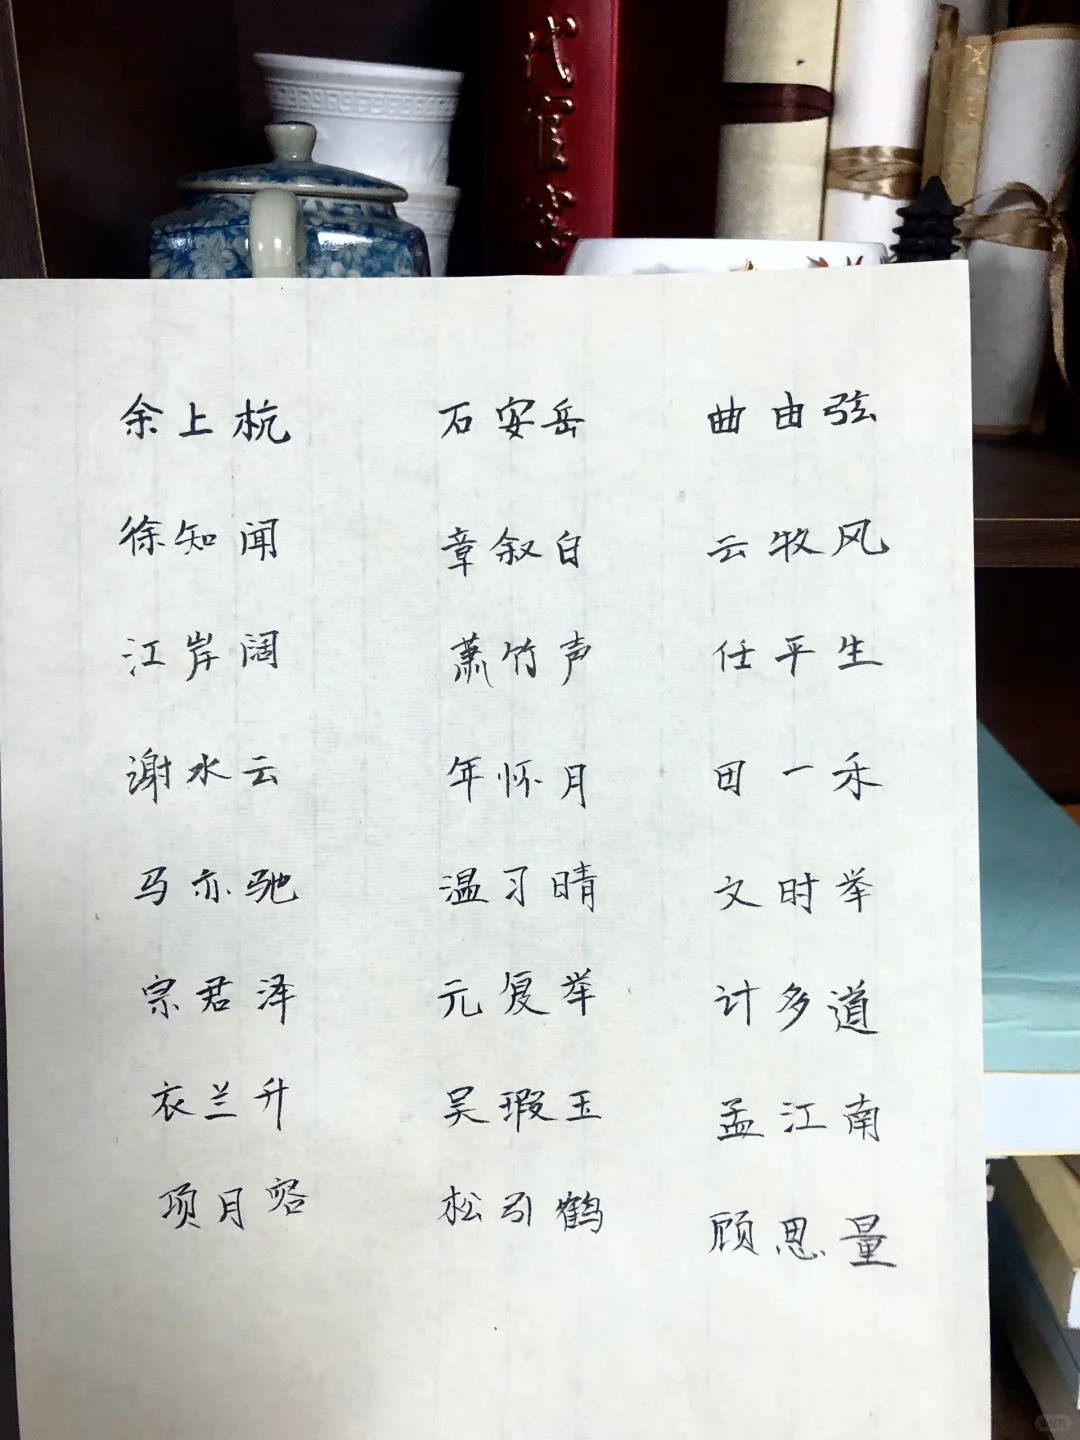 代官窑
余上杭 石安岳 曲由弦
徐知闻 章叙白 云牧风
江岸阔 萧竹声 任平生
谢水云 年怀月 田一禾
马亦驰 温习晴 文时举
宗君泽 元复举 计多道
衣兰升 吴瑕玉 孟江南
项月容 松引鹤 顾思量